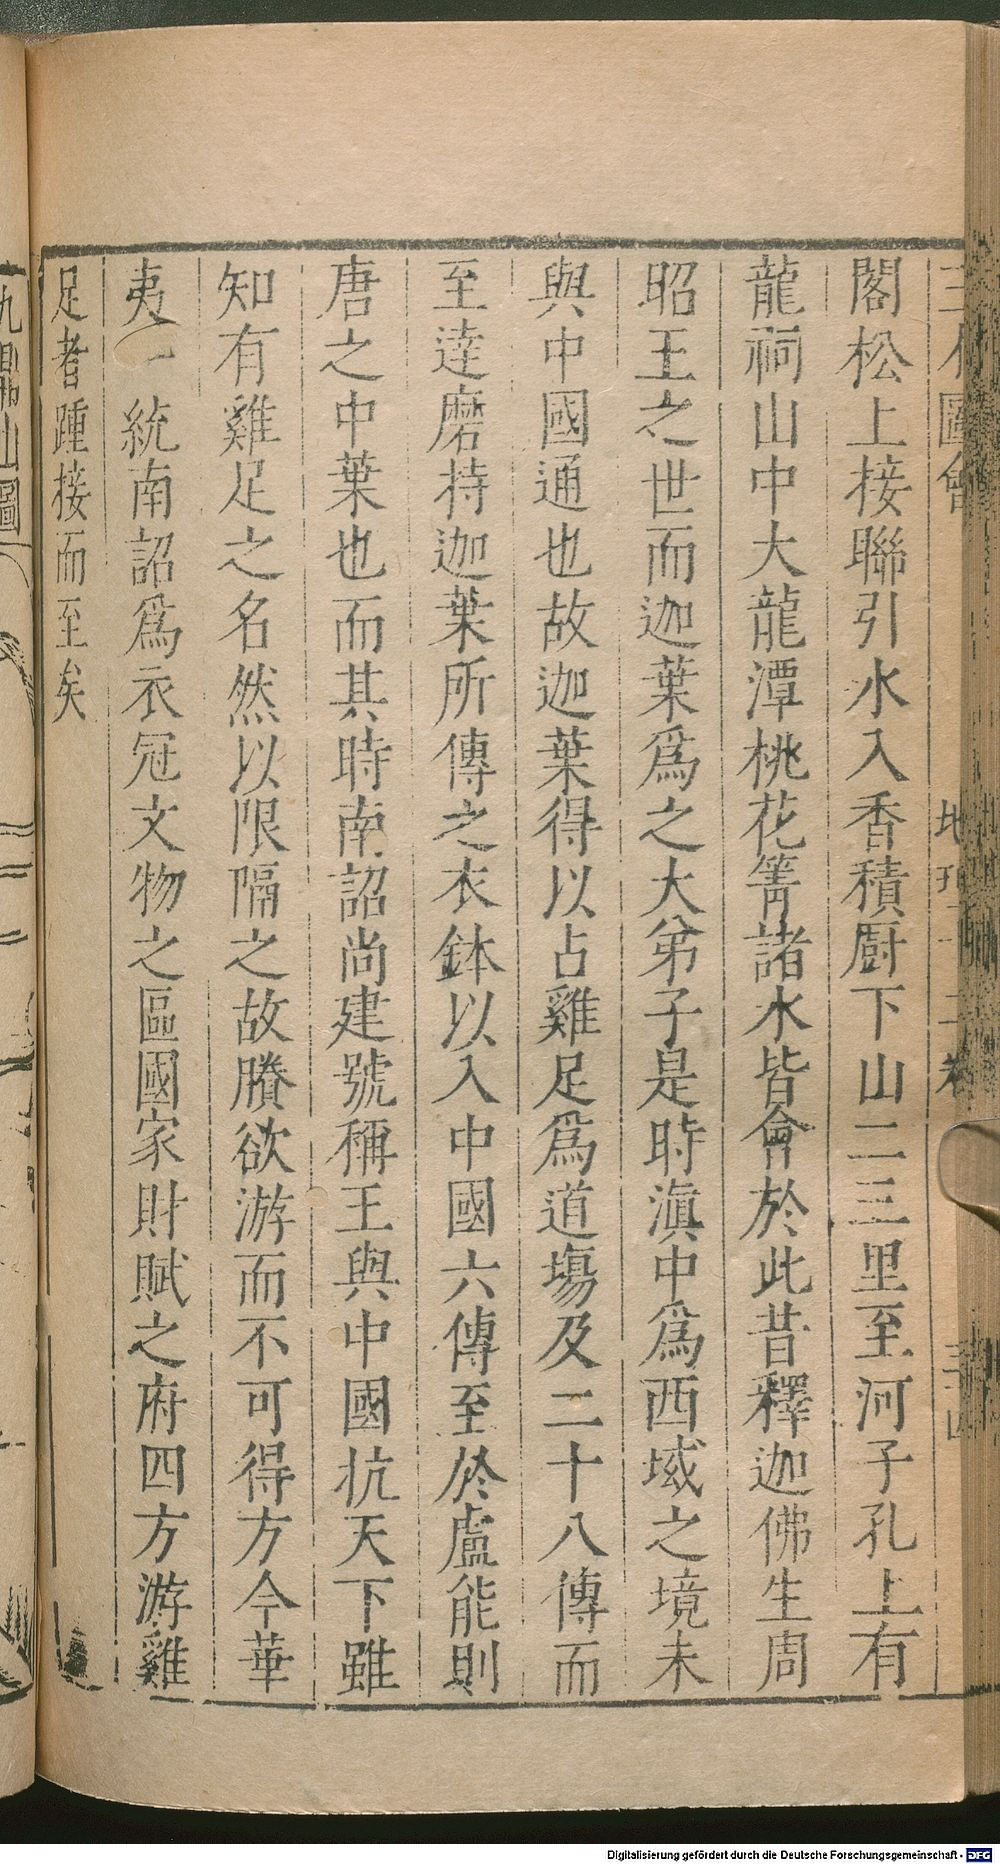 三才圖會 地理十二卷
閣松上接聯引水入香積厨下山二三里至河子孔上有
龍祠山中大龍潭桃花箐諸水皆會於此昔釋迦佛生周
昭王之世而迦葉爲之大弟子是時滇中爲西域之境未
與中國通也故迦葉得以占雞足爲道場及二十八傳而
至達磨持迦葉所傳之衣鉢以入中國六傳至於盧能則
唐之中葉也而其時南詔尚建號稱王與中國抗天下雖
知有雞足之名然以限隔之故賸欲游而不可得方今華
夷一統南詔爲衣冠文物之區國家財賦之府四方游雞
足者踵接而至矣
九鼎山圖
Digitalisierung gefördert durch die Deutsche Forschungsgemeinschaft - DFG